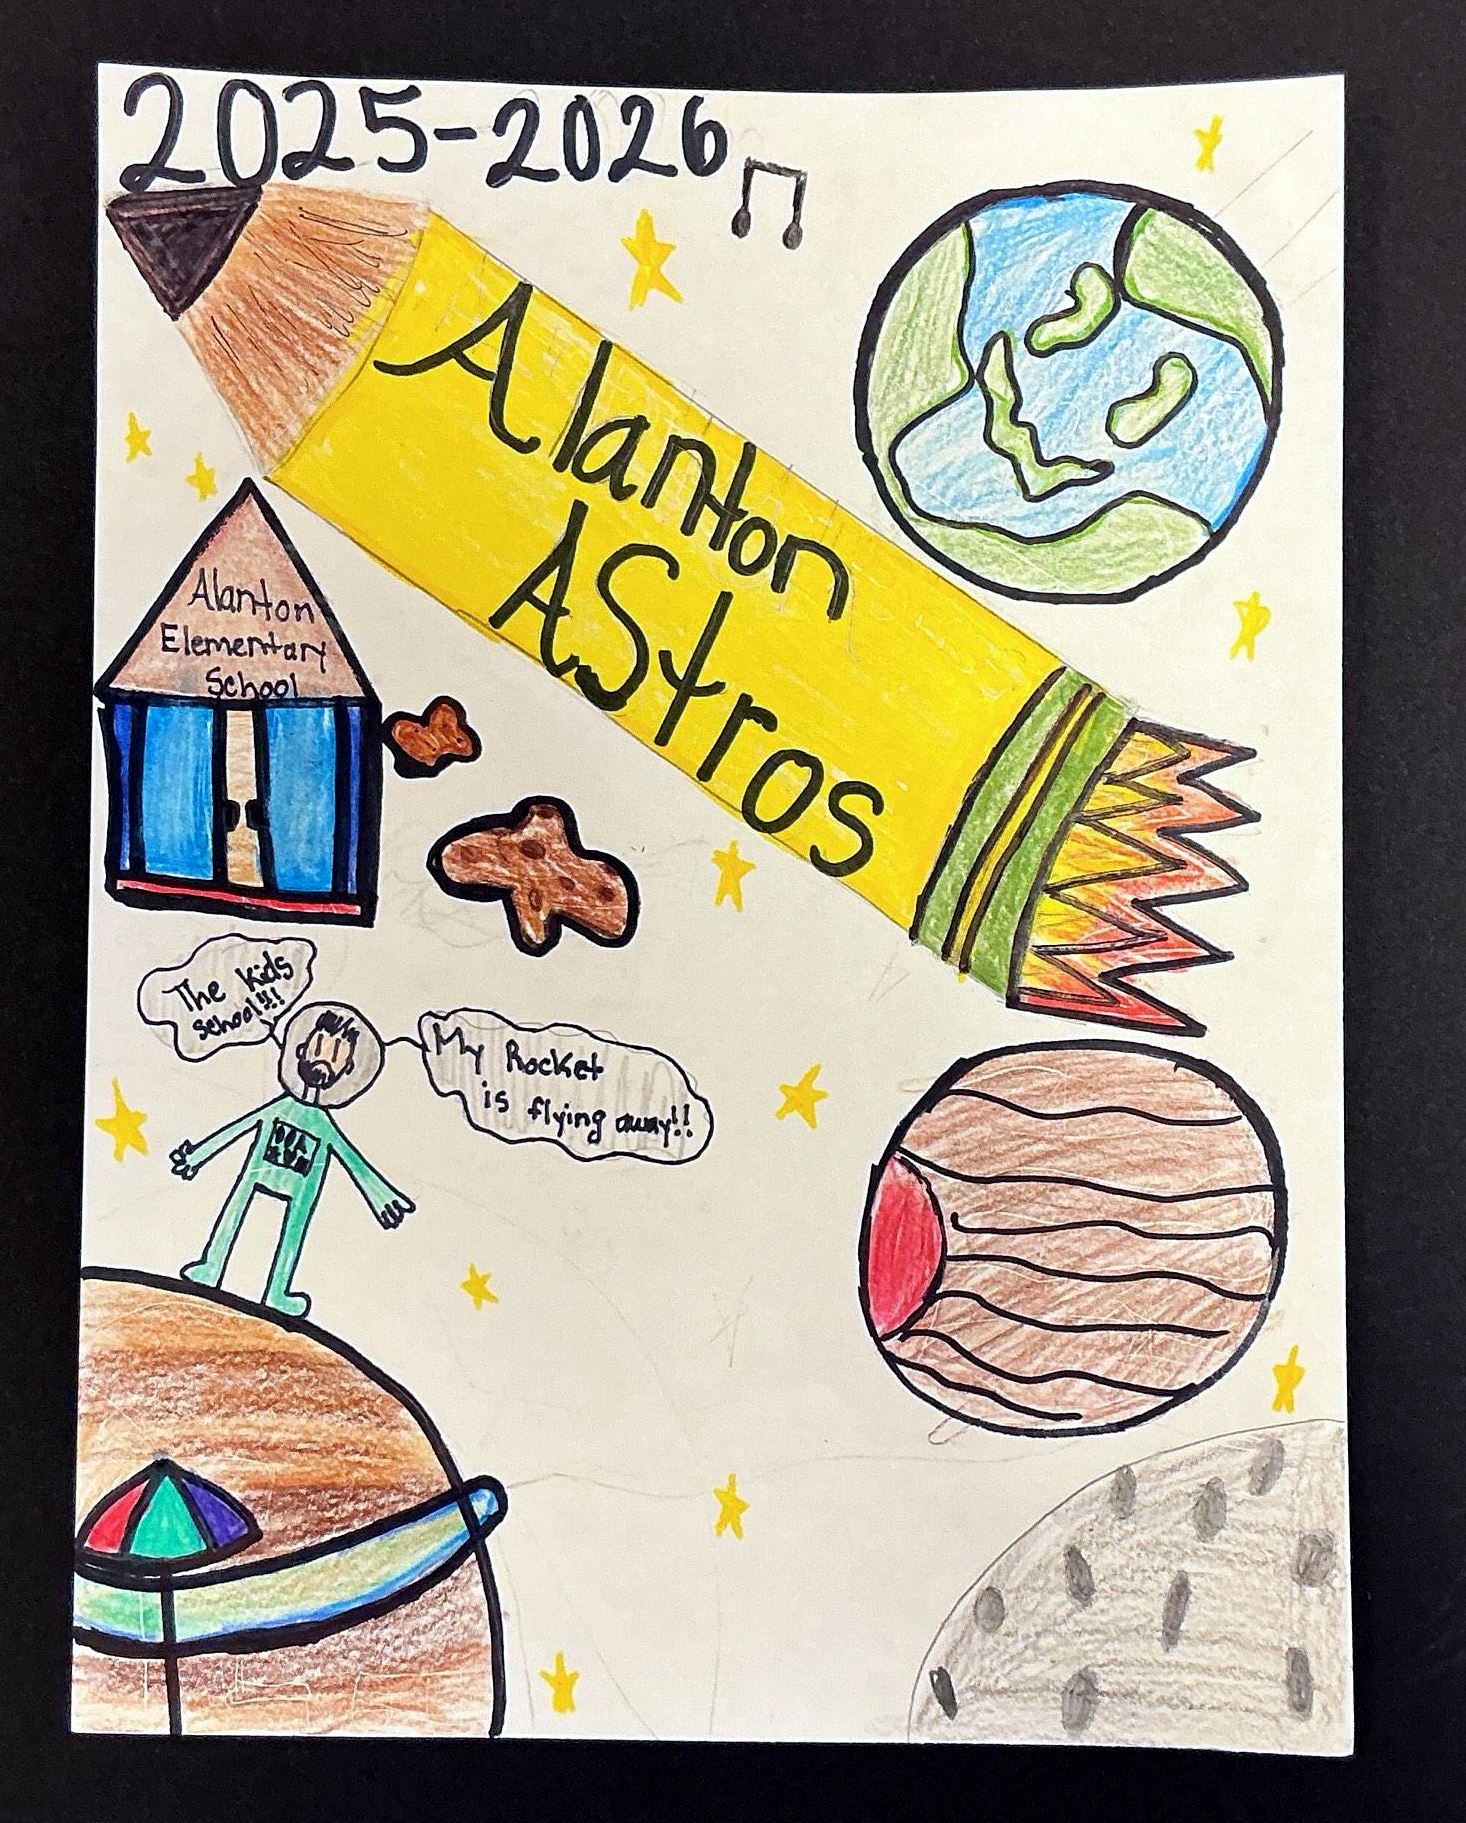 2025-2026
Alanton
AStros
Alanton
Elementary
School
The kids
school!!!
My Rocket
is flying away!!